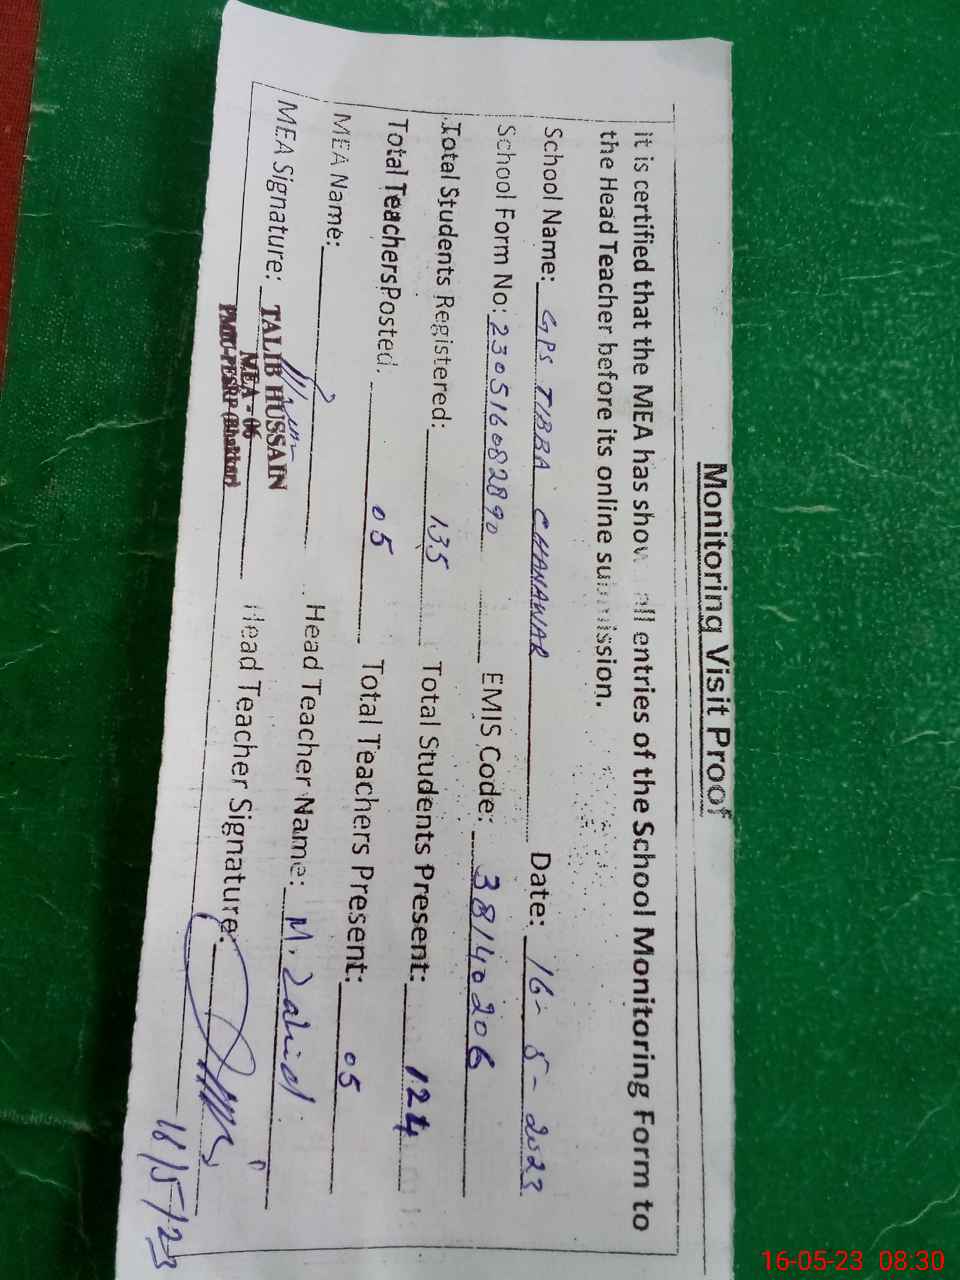 Monitoring Visit Proof
it is certified that the MEA has show all entries of the School Monitoring Form to
the Head Teacher before its online submission.
School Name: GPS TIBBA CHANAWAR Date: 16-5-2023
School Form No: 230516082890 EMIS Code: 38140206
Total Students Registered: 135 Total Students Present: 124
Total TeachersPosted. 05 Total Teachers Present: 05
MEA Name: Head Teacher Name: M. Zahid
MEA Signature: Head Teacher Signature:
TALIB HUSSAIN
MEA - 06
16/5/23
16-05-23 08:30